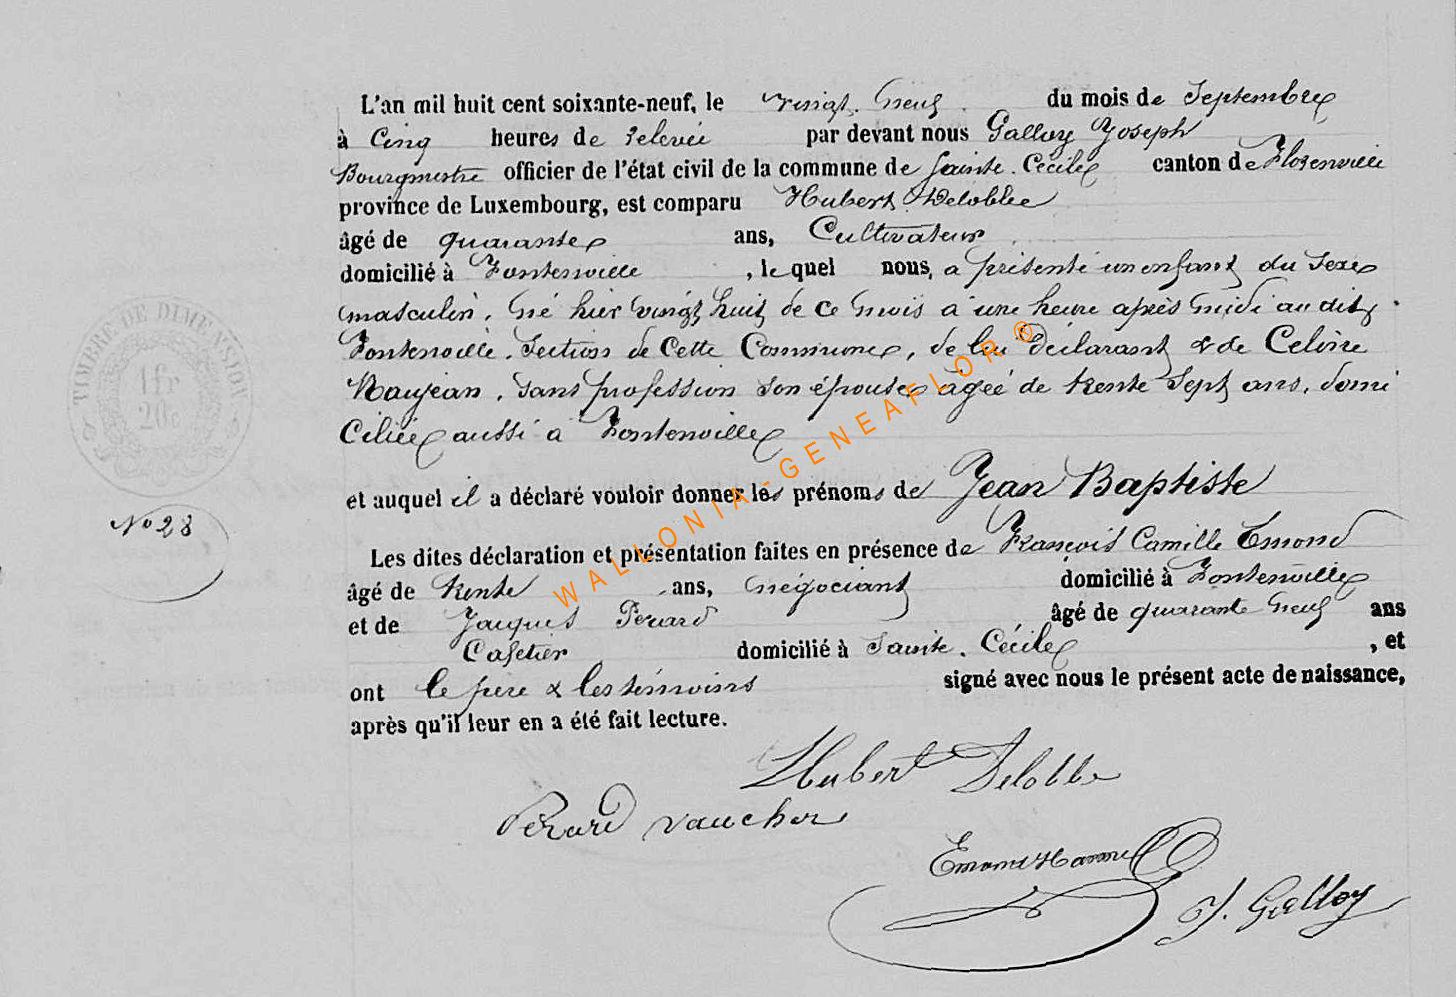 L'an mil huit cent soixante-neuf, le vingt neuf du mois de Septembre
à Cinq heures de relevée par devant nous Galloy Joseph
Bourgmestre officier de l'état civil de la commune de Sainte Cécile canton de Florenville
province de Luxembourg, est comparu Hubert Delobbe
âgé de quarante ans, Cultivateur
domicilié à Fontenoille, lequel nous, a présenté un enfant du sexe
masculin, né hier vingt huit de ce mois à une heure après midi au dit
Fontenoille, Section de Cette Commune, de lui déclarant & de Celine
Maujean, sans profession son épouse âgée de trente Sept ans, domi
Ciliée aussi à Fontenoille
et auquel il a déclaré vouloir donner les prénoms de Jean Baptiste
Nº 28
Les dites déclaration et présentation faites en présence de François Camille Emond
âgé de trente ans, négociant domicilié à Fontenoille
et de Jacques Pérard âgé de quarante neuf ans
Cafetier domicilié à Sainte. Cécile, et
ont le père & les témoins signé avec nous le présent acte de naissance,
après qu'il leur en a été fait lecture.
Hubert Delobbe
Pérard Vaucher
Emond
J. Galloy
TIMBRE DE DIMENSION
1 fr
20c
WALLONIA-GENEAFLOR®